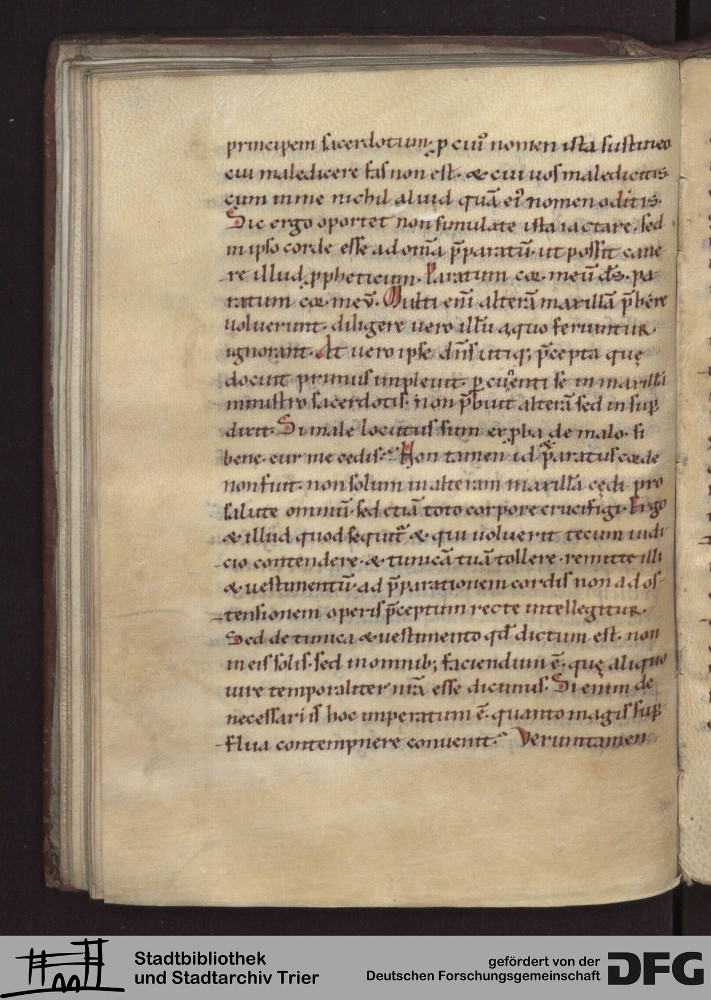 principem sacerdotum; ꝓ cui᷒ nomen ista sustineo
cui maledicere fas non est· & cui uos maledicitis·
cum in me nichil aliud quā ei᷒ nomen oditis·
Sic ergo oportet non simulate ista iactare· sed
in ipso corde esse ad om̄a p̄paratū· ut possit cane
re illud ꝓpheticum· Paratum cor meū d̄s· pa
ratum cor meū· Multi eni alterā maxillā p̄bere
uoluerunt· diligere uero illū a quo feriuntur
ignorant· At uero ipse dn̄s utiq; p̄cepta quę
docuit primus impleuit· ꝑcutienti se in maxillā
ministro sacerdotis· non p̄buit alterā sed insuꝑ
dixit· Si male locutus sum exꝓbra de malo· si
bene· cur me cedis· Non tamen id p̄paratus corde
non fuit· non solum in alteram maxillā cędi pro
salute omniū· sed etiā toto corpore crucifigi· Ergo
& illud quod sequit̄ & qui uoluerit tecum iudi
cio contendere· & tunicā tuā tollere· remitte illi
& uestimentū· ad p̄parationem cordis non ad os
tensionem operis p̄ceptum recte intellegitur·
Sed de tunica & uestimento qd̄ dictum est· non
in eis solis· sed in omnib; faciendum ē· quę aliquo
iure temporaliter nr̄a esse dicimus· Si enim de
necessariis hoc imperatum ē· quanto magis suꝑ
flua contempnere conuenit· Veruntamen
Stadtbibliothek
und Stadtarchiv Trier
gefördert von der
Deutschen Forschungsgemeinschaft DFG